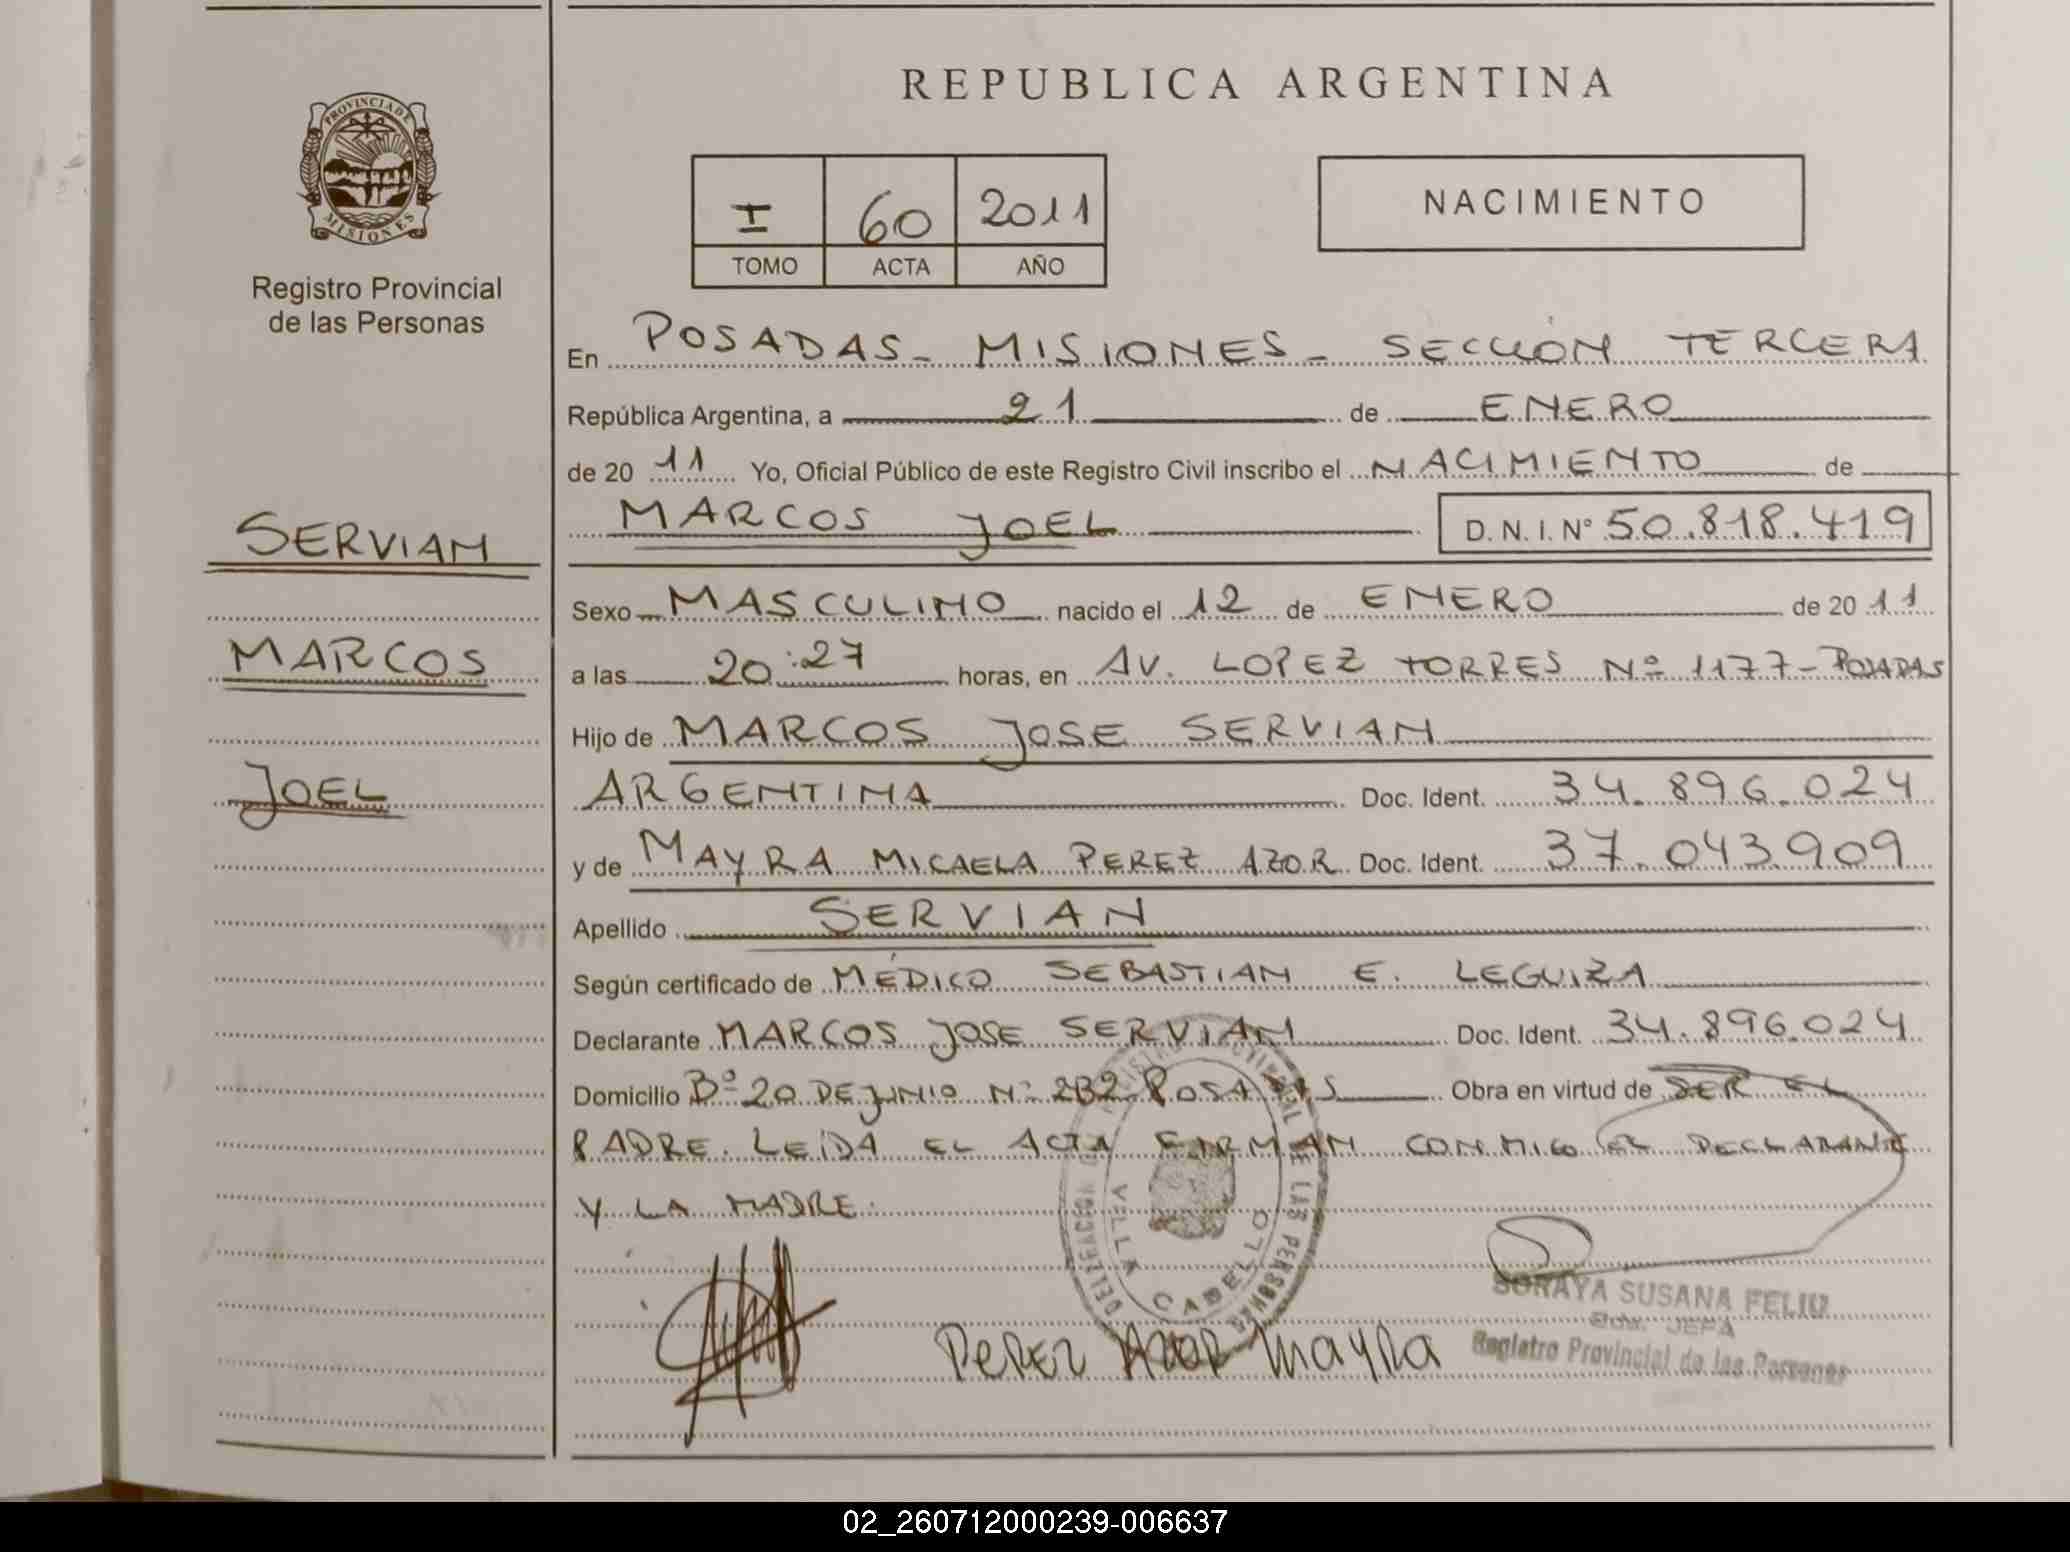 REPUBLICA ARGENTINA
PROVINCIA DE MISIONES
Registro Provincial
de las Personas
I 60 2011
TOMO ACTA AÑO
NACIMIENTO
En POSADAS - MISIONES - SECCIÓN TERCERA
República Argentina, a 21 de ENERO
de 20 11 Yo, Oficial Público de este Registro Civil inscribo el NACIMIENTO de
MARCOS JOEL D.N.I. Nº 50.818.419
SERVIAN
MARCOS
JOEL
Sexo MASCULINO nacido el 12 de ENERO de 20 11
a las 20:27 horas, en AV. LOPEZ TORRES Nº 1177 - POSADAS
Hijo de MARCOS JOSE SERVIAN
ARGENTINA Doc. Ident. 34.896.024
y de MAYRA MICAELA PEREZ AZOR Doc. Ident. 37.043.909
Apellido SERVIAN
Según certificado de MÉDICO SEBASTIAN E. LEGUIZA
Declarante MARCOS JOSE SERVIAN Doc. Ident. 34.896.024
Domicilio Bº 20 DE JUNIO Nº 232 POSADAS Obra en virtud de SER EL
PADRE. LEIDA EL ACTA FIRMAN CONMIGO EL DECLARANTE
Y LA MADRE.
DELEGACION VILLA CABELLO
REGISTRO PROVINCIAL DE LAS PERSONAS
PEREZ AZOR MAYRA
SORAYA SUSANA FELIU
JEFA
Registro Provincial de las Personas
02_260712000239-006637